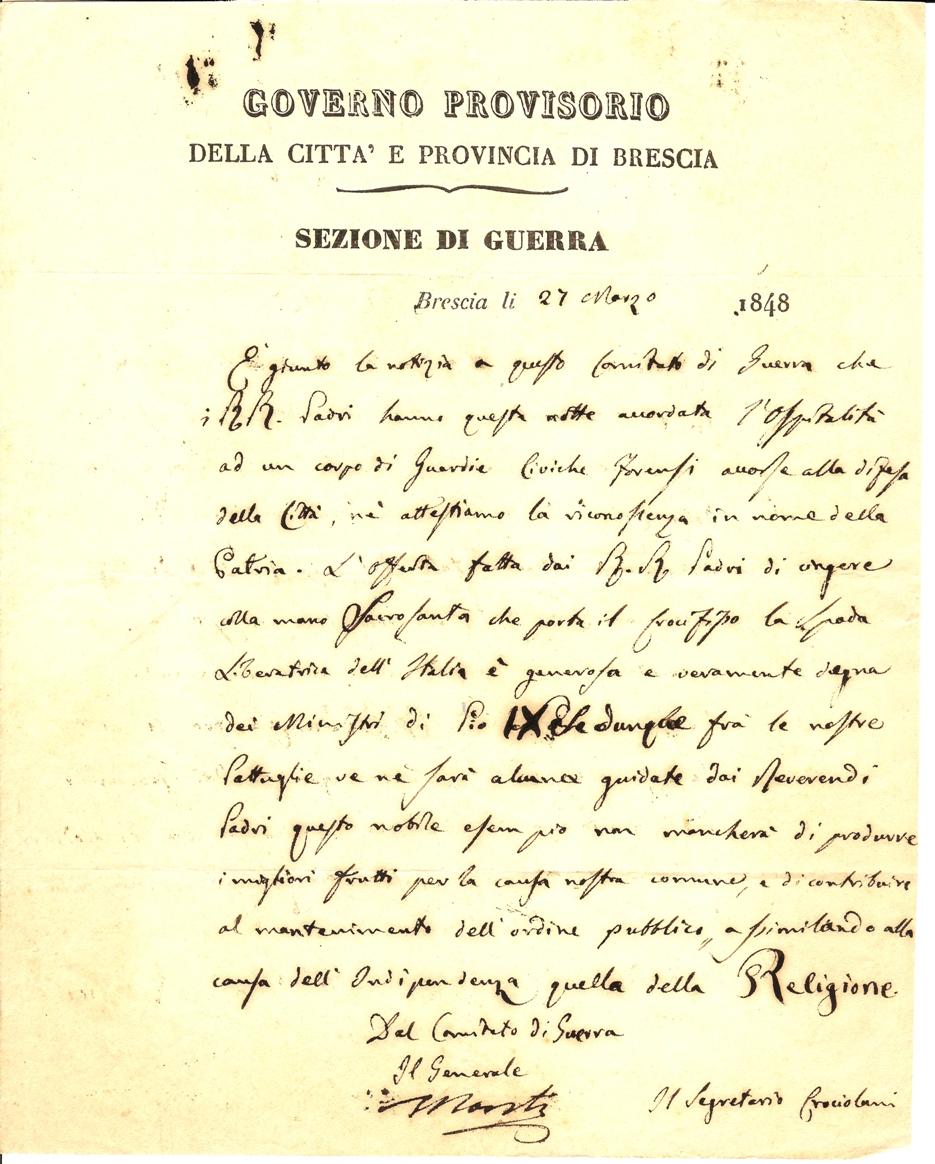 GOVERNO PROVISORIO
DELLA CITTA' E PROVINCIA DI BRESCIA
SEZIONE DI GUERRA
Brescia li 27 Marzo 1848
È giunto la notizia a questo Comitato di Guerra che
i RR. Padri hanno questa notte accordata l'Ospitalità
ad un corpo di Guardie Civiche Forensi accorse alla difesa
della Città, nè attestiamo la riconoscenza in nome della
Patria. L'offerta fatta dai R.R Padri di ungere
colla mano Sacrosanta che porta il Crocifisso la Spada
Liberatrice dell'Italia è generosa e veramente degna
dei Ministri di Pio IX e Se dunque frà le nostre
Pattuglie ve nè sarà alcuna guidate dai Reverendi
Padri questo nobile esempio non mancherà di produrre
i migliori frutti per la causa nostra comune, e di contribuire
al mantenimento dell'ordine pubblico, assimilando alla
causa dell'Indipendenza quella della Religione.
Dal Comitato di Guerra
Il Generale
Il Segretario Crociolani